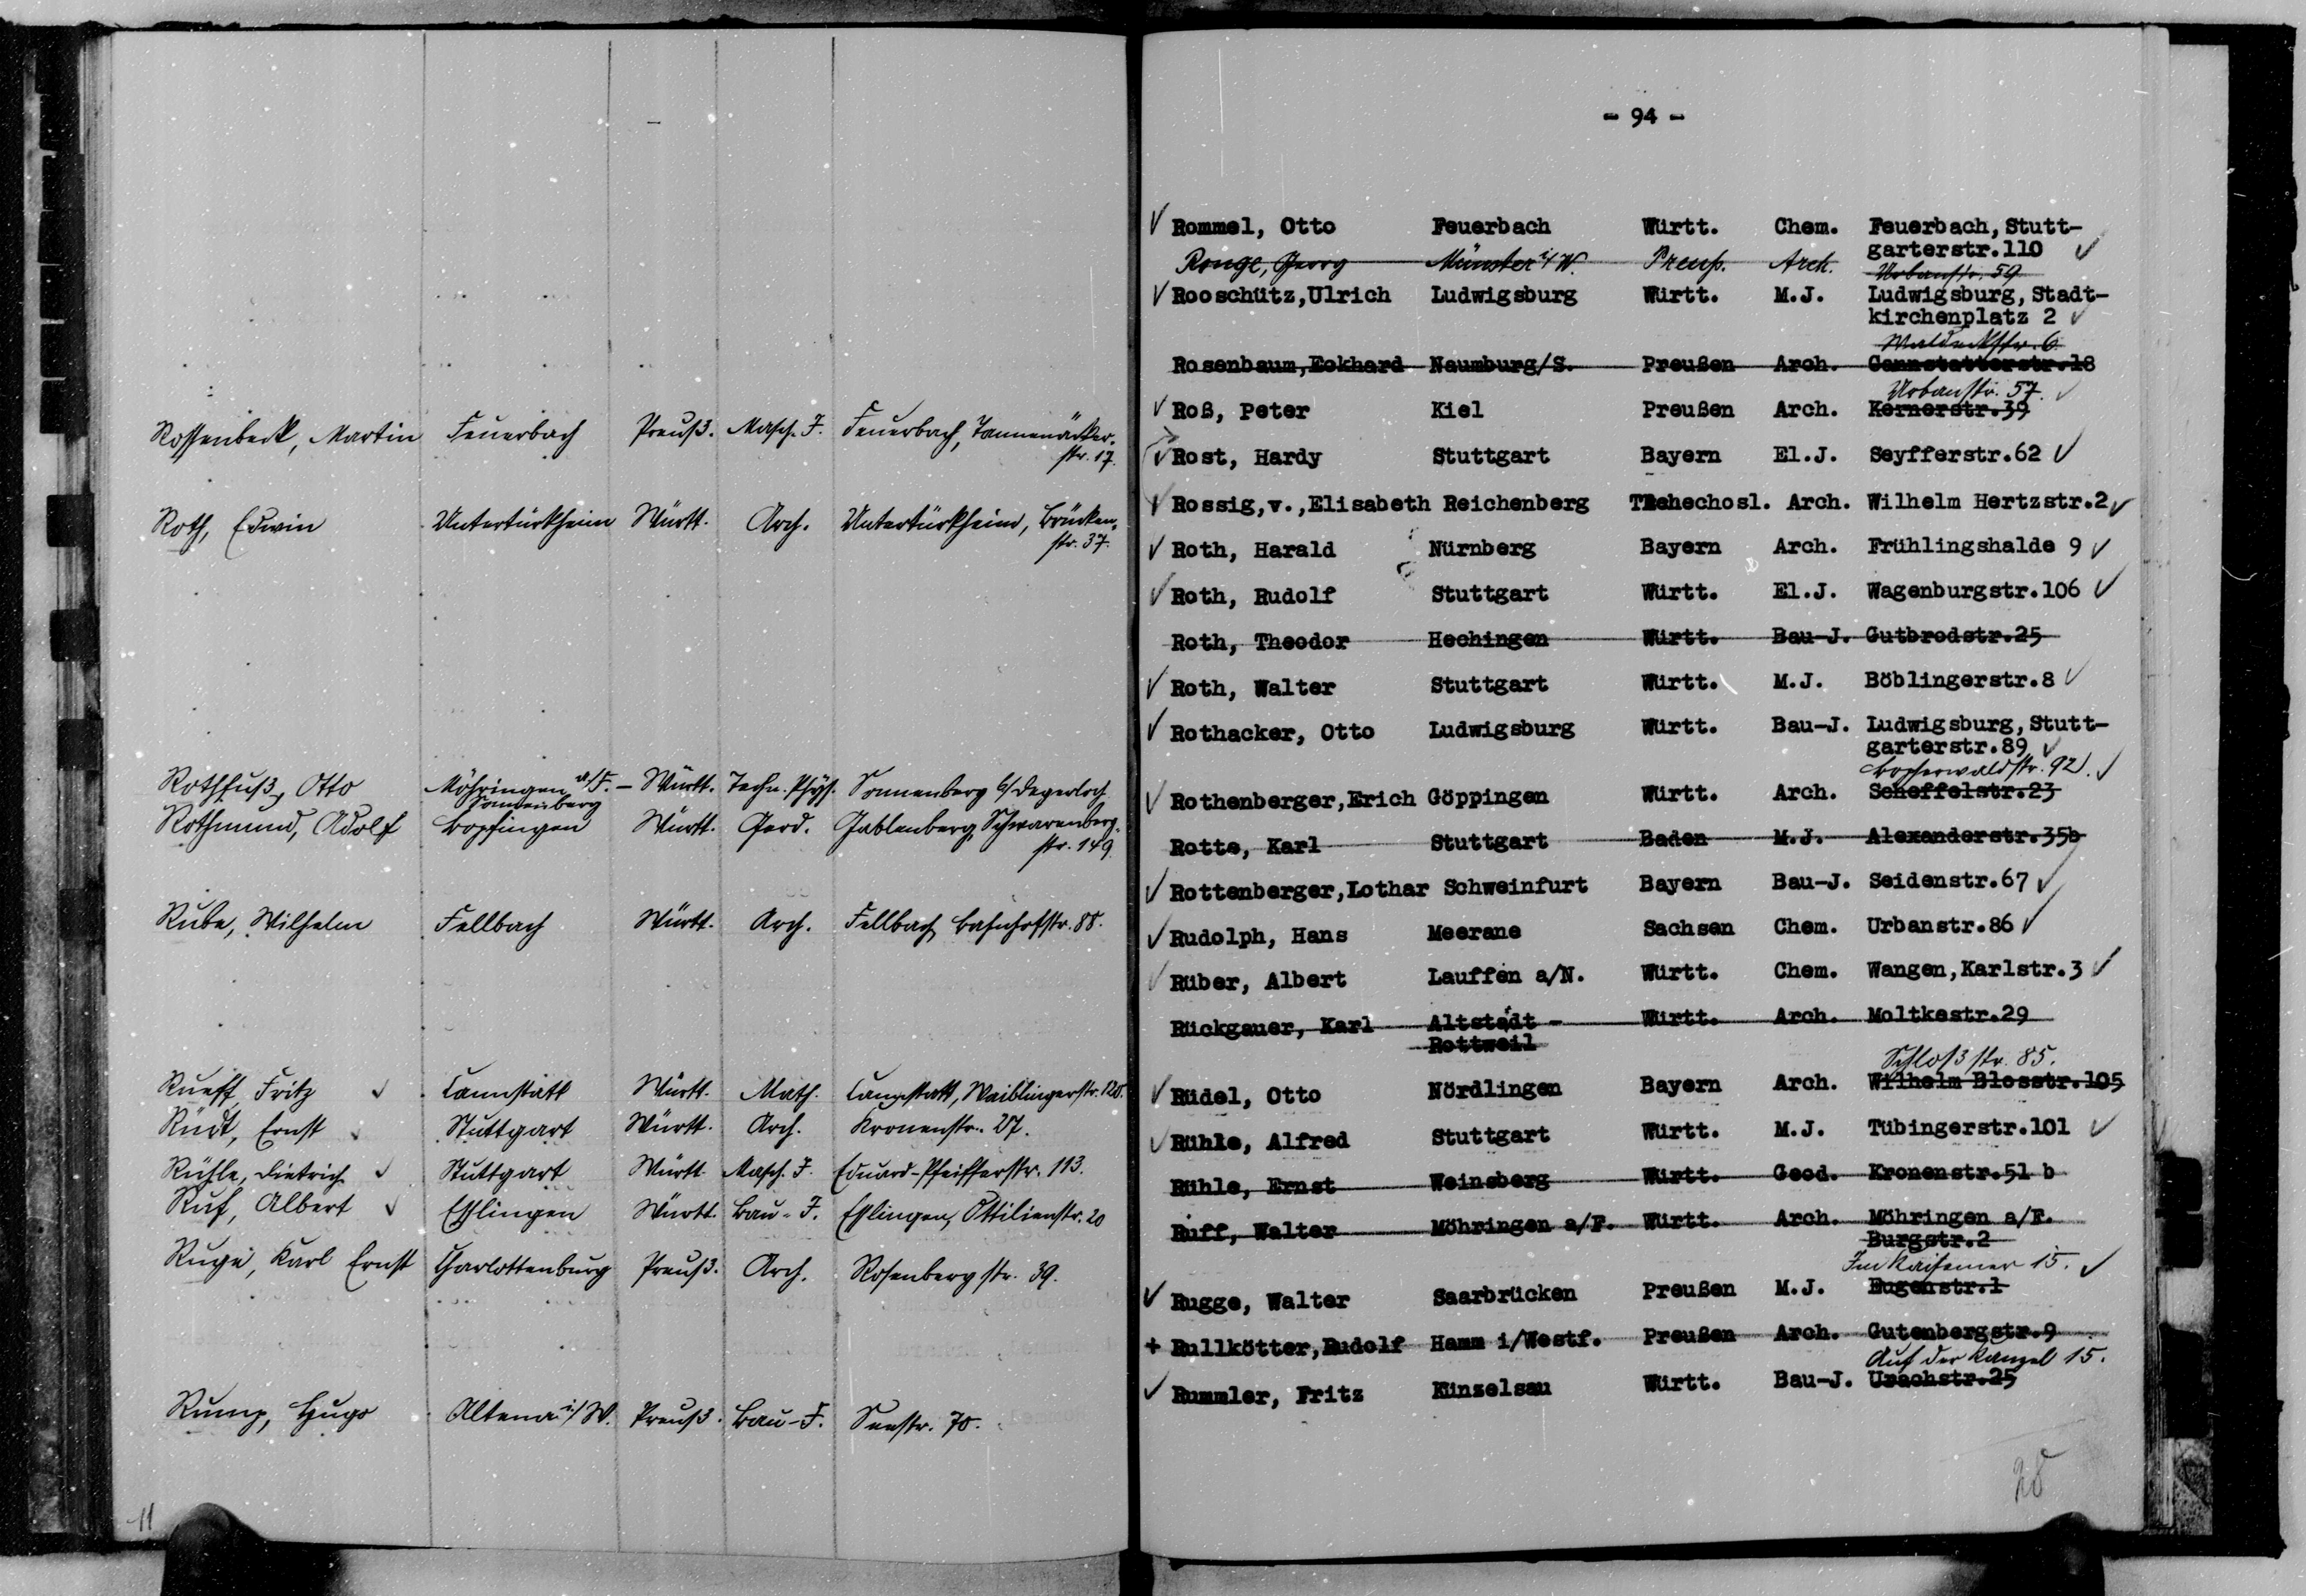 Rossenbeck, Martin Feuerbach Preuß. Masch. I. Feuerbach, Tannenäcker-
str. 17.
Roth, Edwin Untertürkheim Württ. Arch. Untertürkheim, Brücken-
str. 37.
Rothfuß, Otto Möhringen a/F. - Württ. Techn. Phys. Sonnenberg b/Degerloch
Sonnenberg
Rothmund, Adolf Bopfingen Württ. Geod. Gablenberg, Schwarenberg-
str. 149.
Rube, Wilhelm Fellbach Württ. Arch. Fellbach, Bahnhofstr. 88.
Rueff, Fritz ✓ Cannstatt Württ. Math. Cannstatt, Waiblingerstr.
Rüdt, Ernst ✓ Stuttgart Württ. Arch. Kronenstr. 27.
Rühle, Dietrich ✓ Stuttgart Württ. Masch. I. Eduard-Pfeifferstr. 113.
Ruf, Albert ✓ Eßlingen Württ. Bau-I. Eßlingen, Ottilienstr. 20
Ruge, Karl Ernst Charlottenburg Preuß. Arch. Rosenbergstr. 39.
Rump, Hugo Altena i/W. Preuß. Bau-I. Seestr. 70.
11
- 94 -
✓ Rommel, Otto Feuerbach Württ. Chem. Feuerbach, Stutt-
garterstr.110 ✓
Ronge, Georg Münster i/W. Preuß. Arch. Urbanstr. 59
✓ Rooschütz,Ulrich Ludwigsburg Württ. M.J. Ludwigsburg, Stadt-
kirchenplatz 2 ✓
Rosenbaum,Eckhard Naumburg/S. Preußen Arch. Cannstatterstr.18
Urbanstr. 57. ✓
✓ Roß, Peter Kiel Preußen Arch. Kernerstr.39
✓ Rost, Hardy Stuttgart Bayern El.J. Seyfferstr.62 ✓
✓ Rossig,v.,Elisabeth Reichenberg Tschechosl. Arch. Wilhelm Hertzstr.2 ✓
✓ Roth, Harald Nürnberg Bayern Arch. Frühlingshalde 9 ✓
✓ Roth, Rudolf Stuttgart Württ. El.J. Wagenburgstr.106 ✓
Roth, Theodor Hechingen Württ. Bau-J. Gutbrodstr.25
✓ Roth, Walter Stuttgart Württ. M.J. Böblingerstr.8 ✓
✓ Rothacker, Otto Ludwigsburg Württ. Bau-J. Ludwigsburg, Stutt-
garterstr.89 ✓
Bopserwaldstr. 92. ✓
✓ Rothenberger,Erich Göppingen Württ. Arch. Scheffelstr.23
Rotte, Karl Stuttgart Baden M.J. Alexanderstr.35b
✓ Rottenberger,Lothar Schweinfurt Bayern Bau-J. Seidenstr.67 ✓
✓ Rudolph, Hans Meerane Sachsen Chem. Urbanstr.86 ✓
✓ Rüber, Albert Lauffen a/N. Württ. Chem. Wangen,Karlstr.3 ✓
Rückgauer, Karl Altstadt - Württ. Arch. Moltkestr.29
Rottweil
Schloßstr. 85.
✓ Rüdel, Otto Nördlingen Bayern Arch. Wilhelm Blosstr.105
✓ Rühle, Alfred Stuttgart Württ. M.J. Tübingerstr.101 ✓
Rühle, Ernst Weinsberg Württ. Geod. Kronenstr.51 b
Ruff, Walter Möhringen a/F. Württ. Arch. Möhringen a/F.
Burgstr.2
Im Kaisemer 15. ✓
✓ Rugge, Walter Saarbrücken Preußen M.J. Eugenstr.1
+ Rullkötter,Rudolf Hamm i/Westf. Preußen Arch. Gutenbergstr.9
Auf der Kanzel 15.
✓ Rummler, Fritz Künzelsau Württ. Bau-J. Urachstr.25